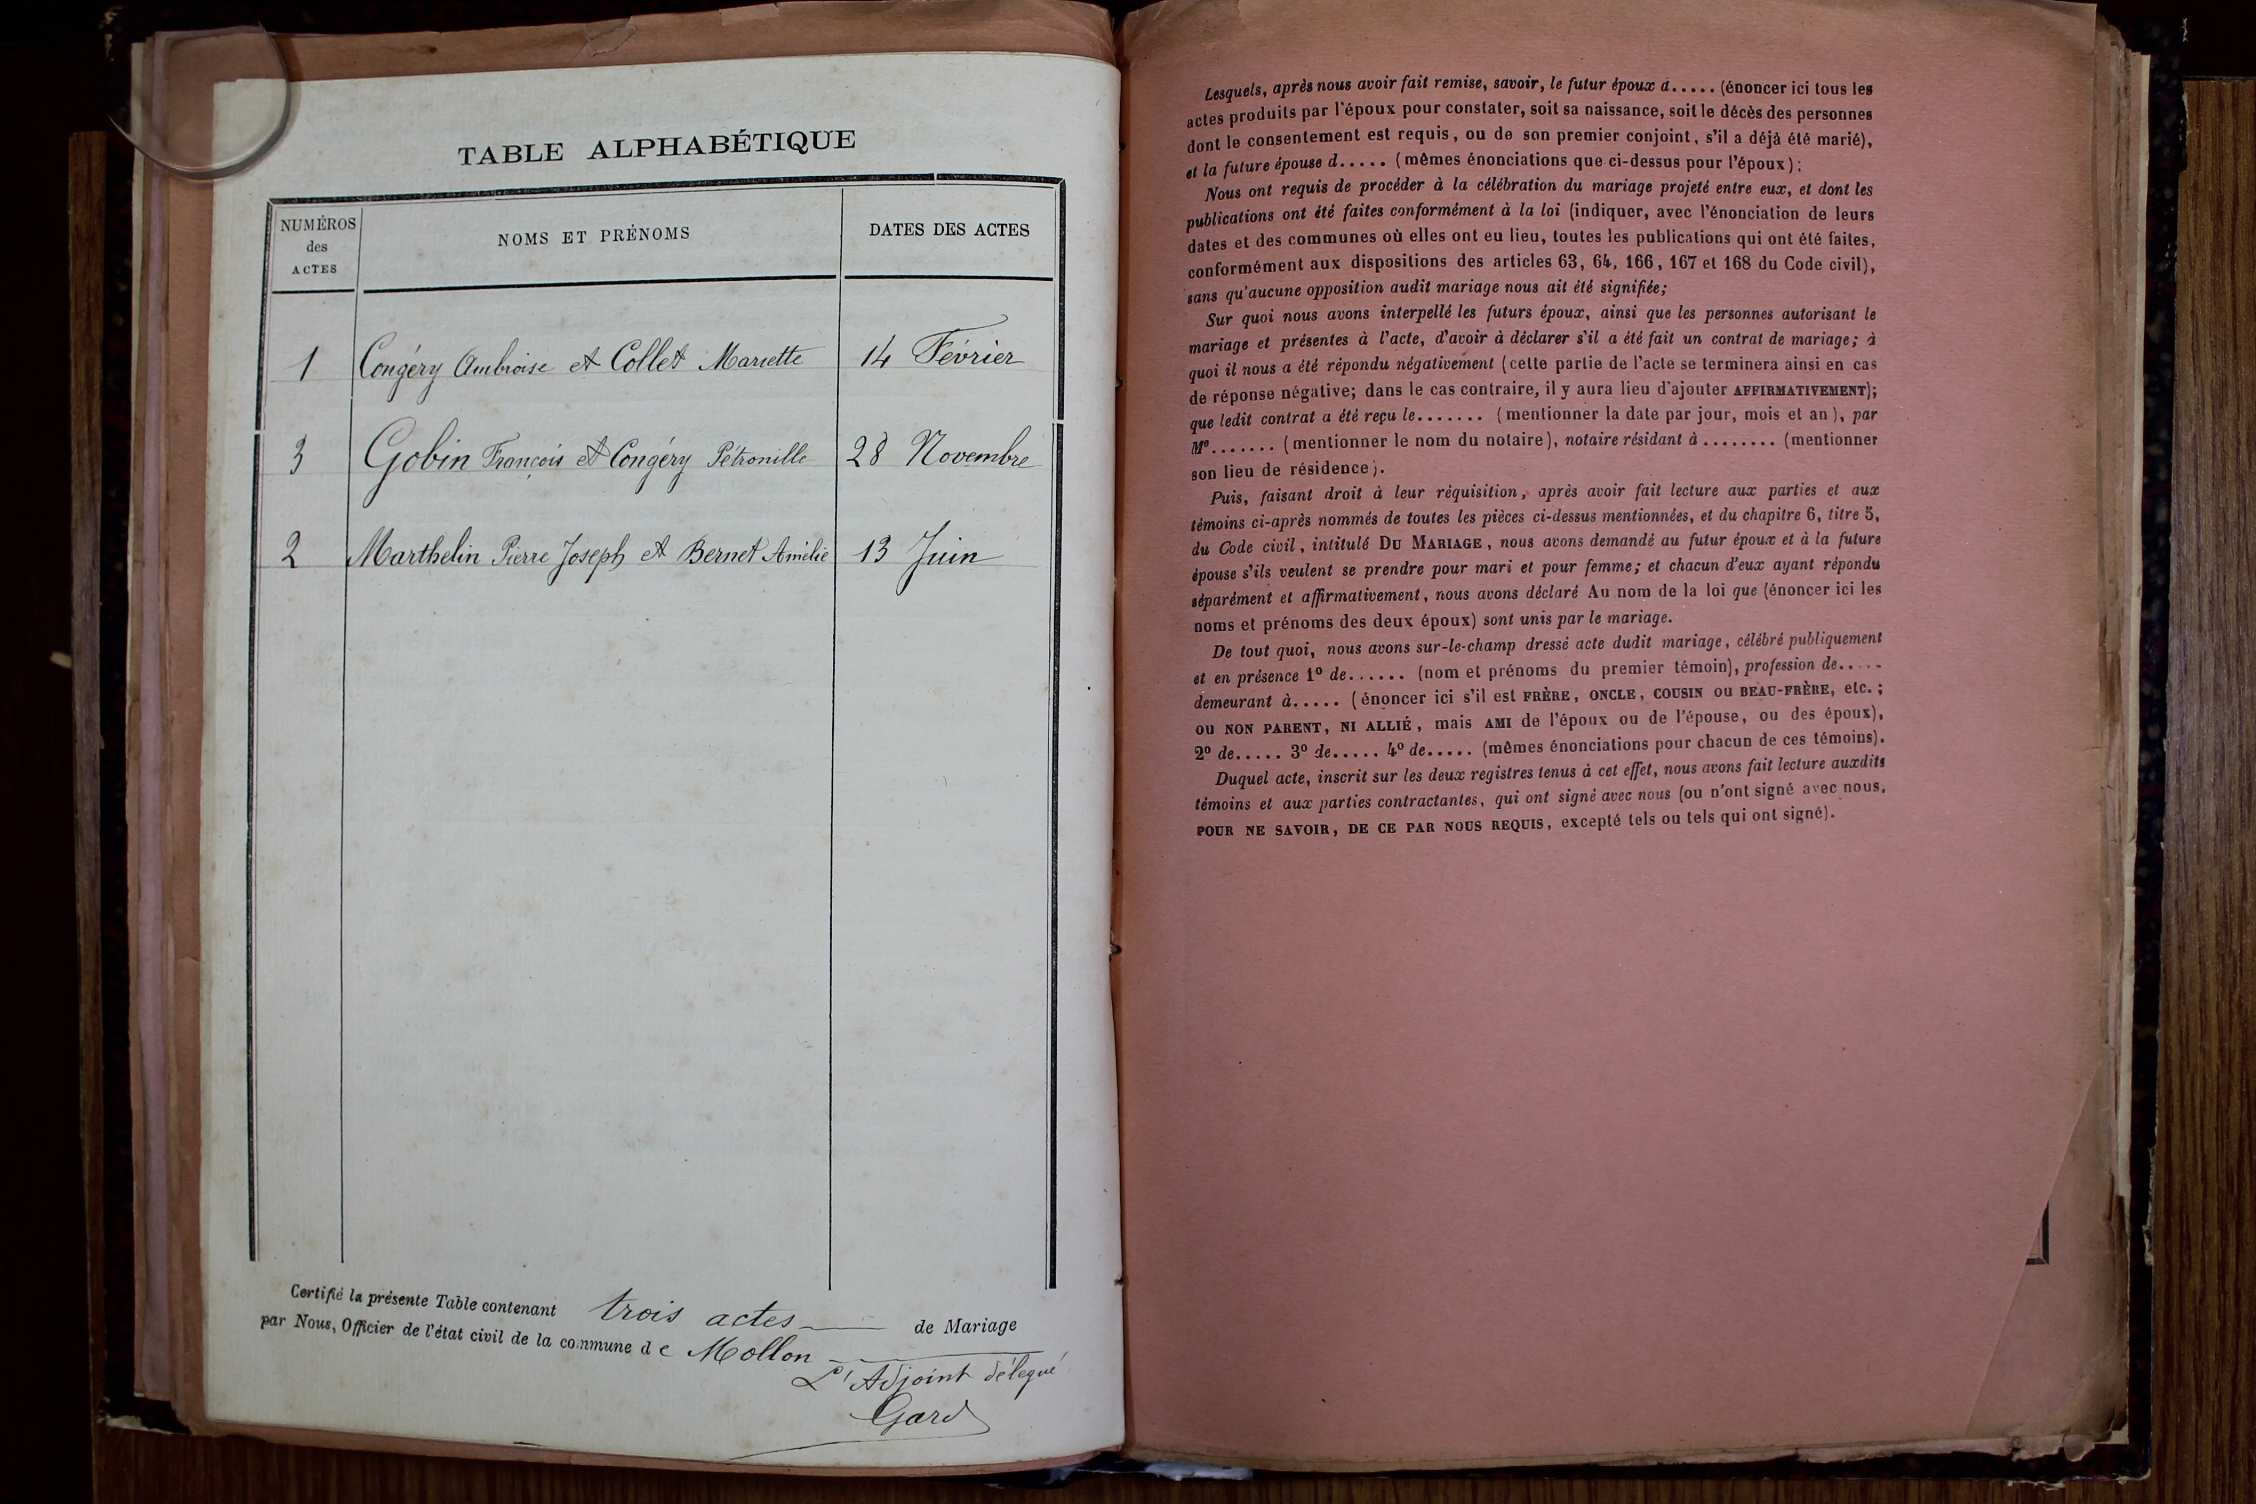 TABLE ALPHABÉTIQUE
NUMÉROS
des
ACTES
NOMS ET PRÉNOMS
DATES DES ACTES
1 Congéry Ambroise et Collet Mariette 14 Février
3 Gobin François et Congéry Pétronille 28 Novembre
2 Marthelin Pierre Joseph et Bernet Amélie 13 Juin
Certifié la présente Table contenant trois actes de Mariage
par Nous, Officier de l'état civil de la commune de Mollon
L'Adjoint délégué
Gard
Lesquels, après nous avoir fait remise, savoir, le futur époux d..... (énoncer ici tous les
actes produits par l'époux pour constater, soit sa naissance, soit le décès des personnes
dont le consentement est requis, ou de son premier conjoint, s'il a déjà été marié),
et la future épouse d..... (mêmes énonciations que ci-dessus pour l'époux);
Nous ont requis de procéder à la célébration du mariage projeté entre eux, et dont les
publications ont été faites conformément à la loi (indiquer, avec l'énonciation de leurs
dates et des communes où elles ont eu lieu, toutes les publications qui ont été faites,
conformément aux dispositions des articles 63, 64, 166, 167 et 168 du Code civil),
sans qu'aucune opposition audit mariage nous ait été signifiée;
Sur quoi nous avons interpellé les futurs époux, ainsi que les personnes autorisant le
mariage et présentes à l'acte, d'avoir à déclarer s'il a été fait un contrat de mariage; à
quoi il nous a été répondu négativement (cette partie de l'acte se terminera ainsi en cas
de réponse négative; dans le cas contraire, il y aura lieu d'ajouter AFFIRMATIVEMENT);
que ledit contrat a été reçu le....... (mentionner la date par jour, mois et an), par
Me....... (mentionner le nom du notaire), notaire résidant à ........ (mentionner
son lieu de résidence).
Puis, faisant droit à leur réquisition, après avoir fait lecture aux parties et aux
témoins ci-après nommés de toutes les pièces ci-dessus mentionnées, et du chapitre 6, titre 5,
du Code civil, intitulé DU MARIAGE, nous avons demandé au futur époux et à la future
épouse s'ils veulent se prendre pour mari et pour femme; et chacun d'eux ayant répondu
séparément et affirmativement, nous avons déclaré Au nom de la loi que (énoncer ici les
noms et prénoms des deux époux) sont unis par le mariage.
De tout quoi, nous avons sur-le-champ dressé acte dudit mariage, célébré publiquement
et en présence 1º de...... (nom et prénoms du premier témoin), profession de.....
demeurant à..... (énoncer ici s'il est FRÈRE, ONCLE, COUSIN ou BEAU-FRÈRE, etc.;
OU NON PARENT, NI ALLIÉ, mais AMI de l'époux ou de l'épouse, ou des époux),
2º de..... 3º de..... 4º de..... (mêmes énonciations pour chacun de ces témoins).
Duquel acte, inscrit sur les deux registres tenus à cet effet, nous avons fait lecture auxdits
témoins et aux parties contractantes, qui ont signé avec nous (ou n'ont signé avec nous,
POUR NE SAVOIR, DE CE PAR NOUS REQUIS, excepté tels ou tels qui ont signé).